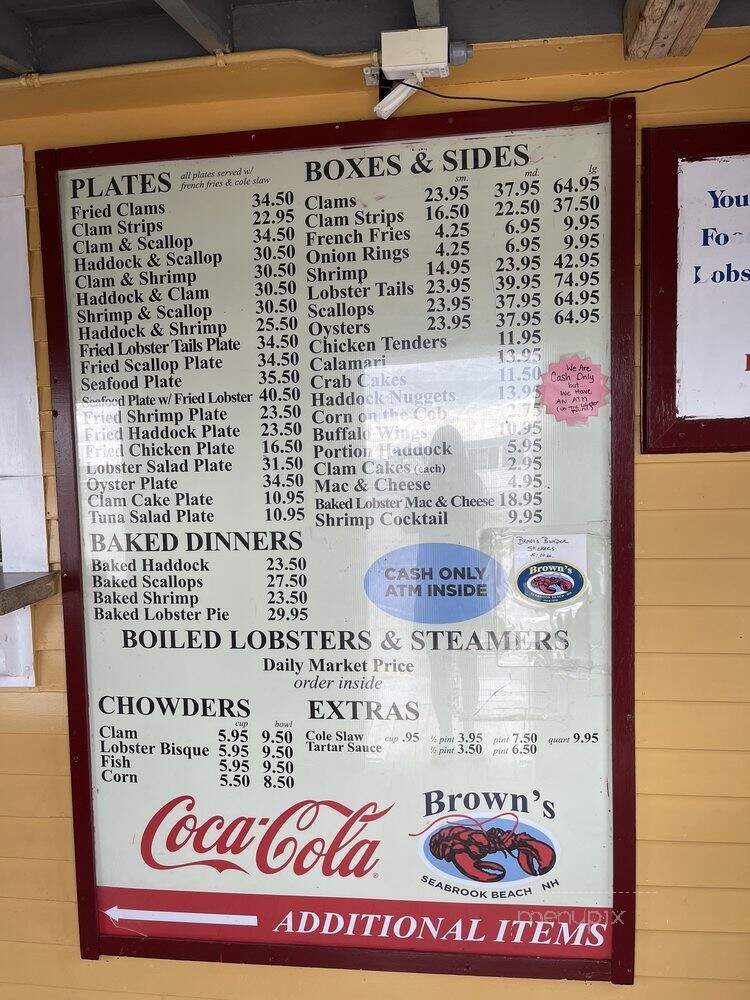 PLATES all plates served w/
french fries & cole slaw
Fried Clams 34.50
Clam Strips 22.95
Clam & Scallop 34.50
Haddock & Scallop 30.50
Clam & Shrimp 30.50
Haddock & Clam 30.50
Shrimp & Scallop 30.50
Haddock & Shrimp 25.50
Fried Lobster Tails Plate 34.50
Fried Scallop Plate 34.50
Seafood Plate 35.50
Seafood Plate w/ Fried Lobster 40.50
Fried Shrimp Plate 23.50
Fried Haddock Plate 23.50
Fried Chicken Plate 16.50
Lobster Salad Plate 31.50
Oyster Plate 34.50
Clam Cake Plate 10.95
Tuna Salad Plate 10.95
BOXES & SIDES
sm. md. lg.
Clams 23.95 37.95 64.95
Clam Strips 16.50 22.50 37.50
French Fries 4.25 6.95 9.95
Onion Rings 4.25 6.95 9.95
Shrimp 14.95 23.95 42.95
Lobster Tails 23.95 39.95 74.95
Scallops 23.95 37.95 64.95
Oysters 23.95 37.95 64.95
Chicken Tenders 11.95
Calamari 13.95
Crab Cakes 11.50
Haddock Nuggets 13.95
Corn on the Cob
Buffalo Wings 10.95
Portion Haddock 5.95
Clam Cakes (each) 2.95
Mac & Cheese 4.95
Baked Lobster Mac & Cheese 18.95
Shrimp Cocktail 9.95
We Are
Cash Only
but
We Have
AN ATM
BAKED DINNERS
Baked Haddock 23.50
Baked Scallops 27.50
Baked Shrimp 23.50
Baked Lobster Pie 29.95
CASH ONLY
ATM INSIDE
Brown's Bumper
Stickers
Brown's
SEABROOK BEACH, NH
BOILED LOBSTERS & STEAMERS
Daily Market Price
order inside
CHOWDERS
cup bowl
Clam 5.95 9.50
Lobster Bisque 5.95 9.50
Fish 5.95 9.50
Corn 5.50 8.50
EXTRAS
Cole Slaw cup .95 ½ pint 3.95 pint 7.50 quart 9.95
Tartar Sauce ½ pint 3.50 pint 6.50
Coca-Cola
Brown's
SEABROOK BEACH NH
ADDITIONAL ITEMS
menupix
You
Fo
Lobs